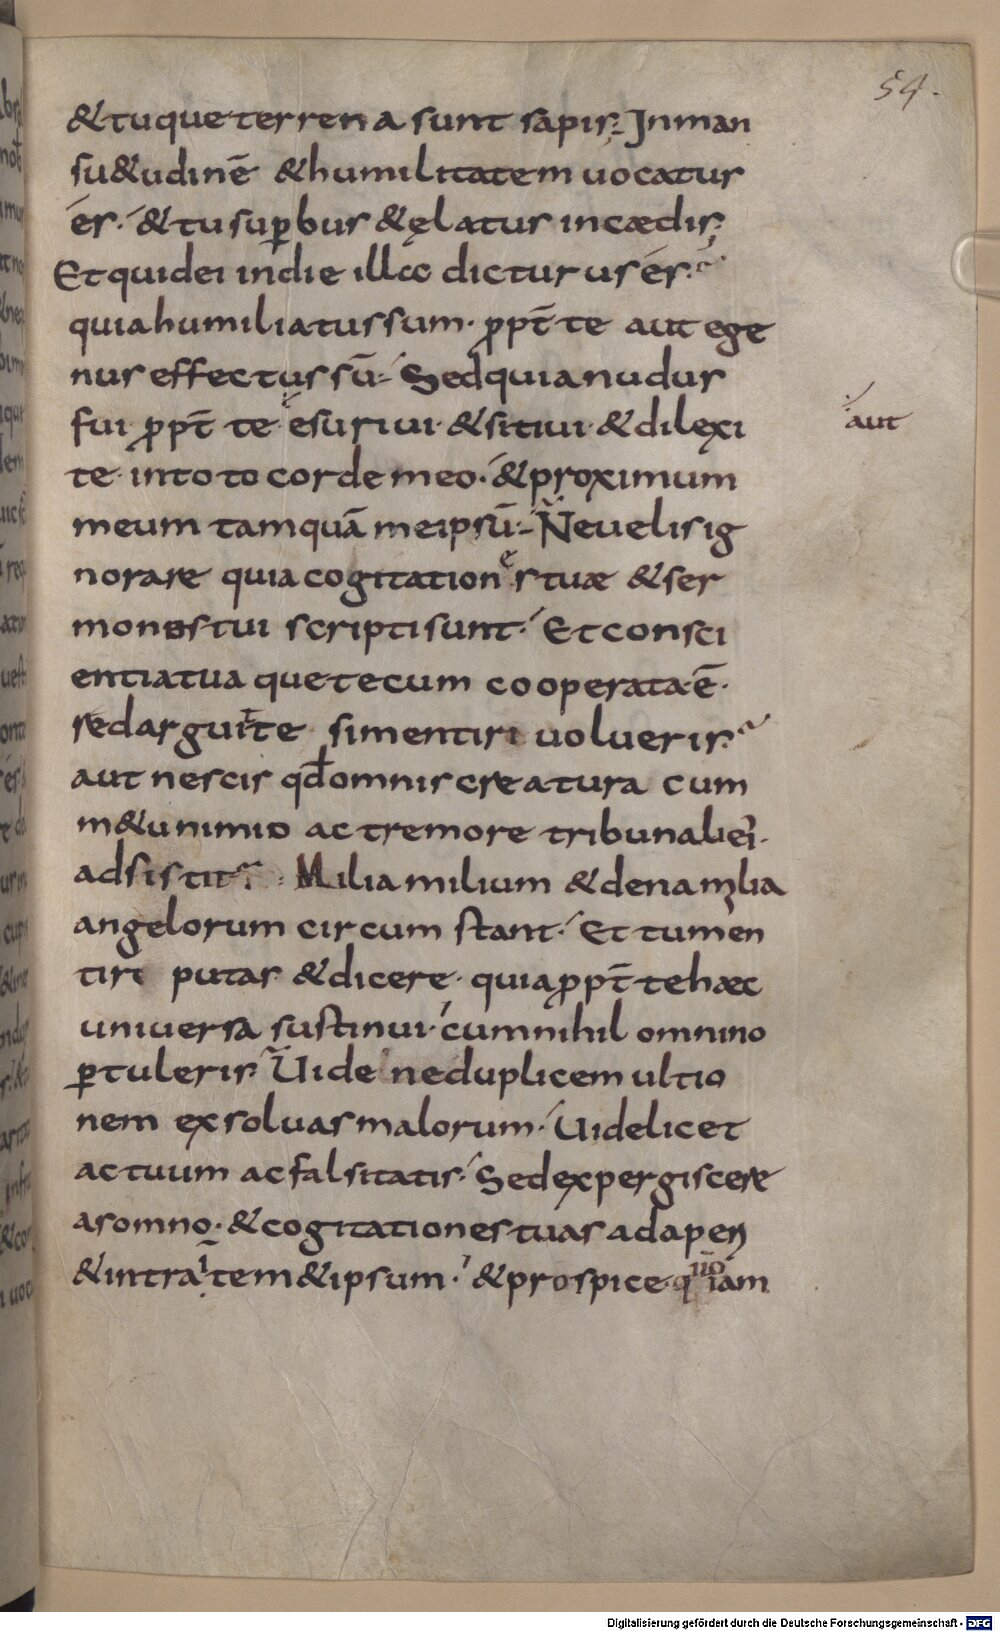 54.
& tu que terrena sunt sapis; In man
su&udinē & humilitatem uocatus
és. & tu sup̄bus & ęlatus incædis;
Et quid ei in die illa dicturus és;
quia humiliatus sum. propt̄ te aut ege
nus effectus sū; Sed quia nudus
fui propt̄ te esuriui. & sitiui. & dilexi aut
te. in toto corde meo. & proximum
meum tamquā meipsū; Ne uelis ig
norare quia cogitationes tuæ & ser
mones tui scripti sunt. Et consci
entia tua que tecum cooperata ē.
redarguit te si mentiri uolueris;
aut nescis qđ omnis creatura cum
m&u nimio ac tremore tribunali ei.
adsistit; Milia milium & dena milia
angelorum circum stant. Et tu men
tiri putas & dicere. quia propt̄ te hæc
universa sustinui. cum nihil omnino
p̄tuleris; Uide ne duplicem ultio
nem exsoluas malorum. Uidelicet
actuum ac falsitatis. Sed expergiscere
a somno. & cogitationes tuas ad apen
& intra tem&ipsum. & prospice. quoniam
Digitalisierung gefördert durch die Deutsche Forschungsgemeinschaft - DFG